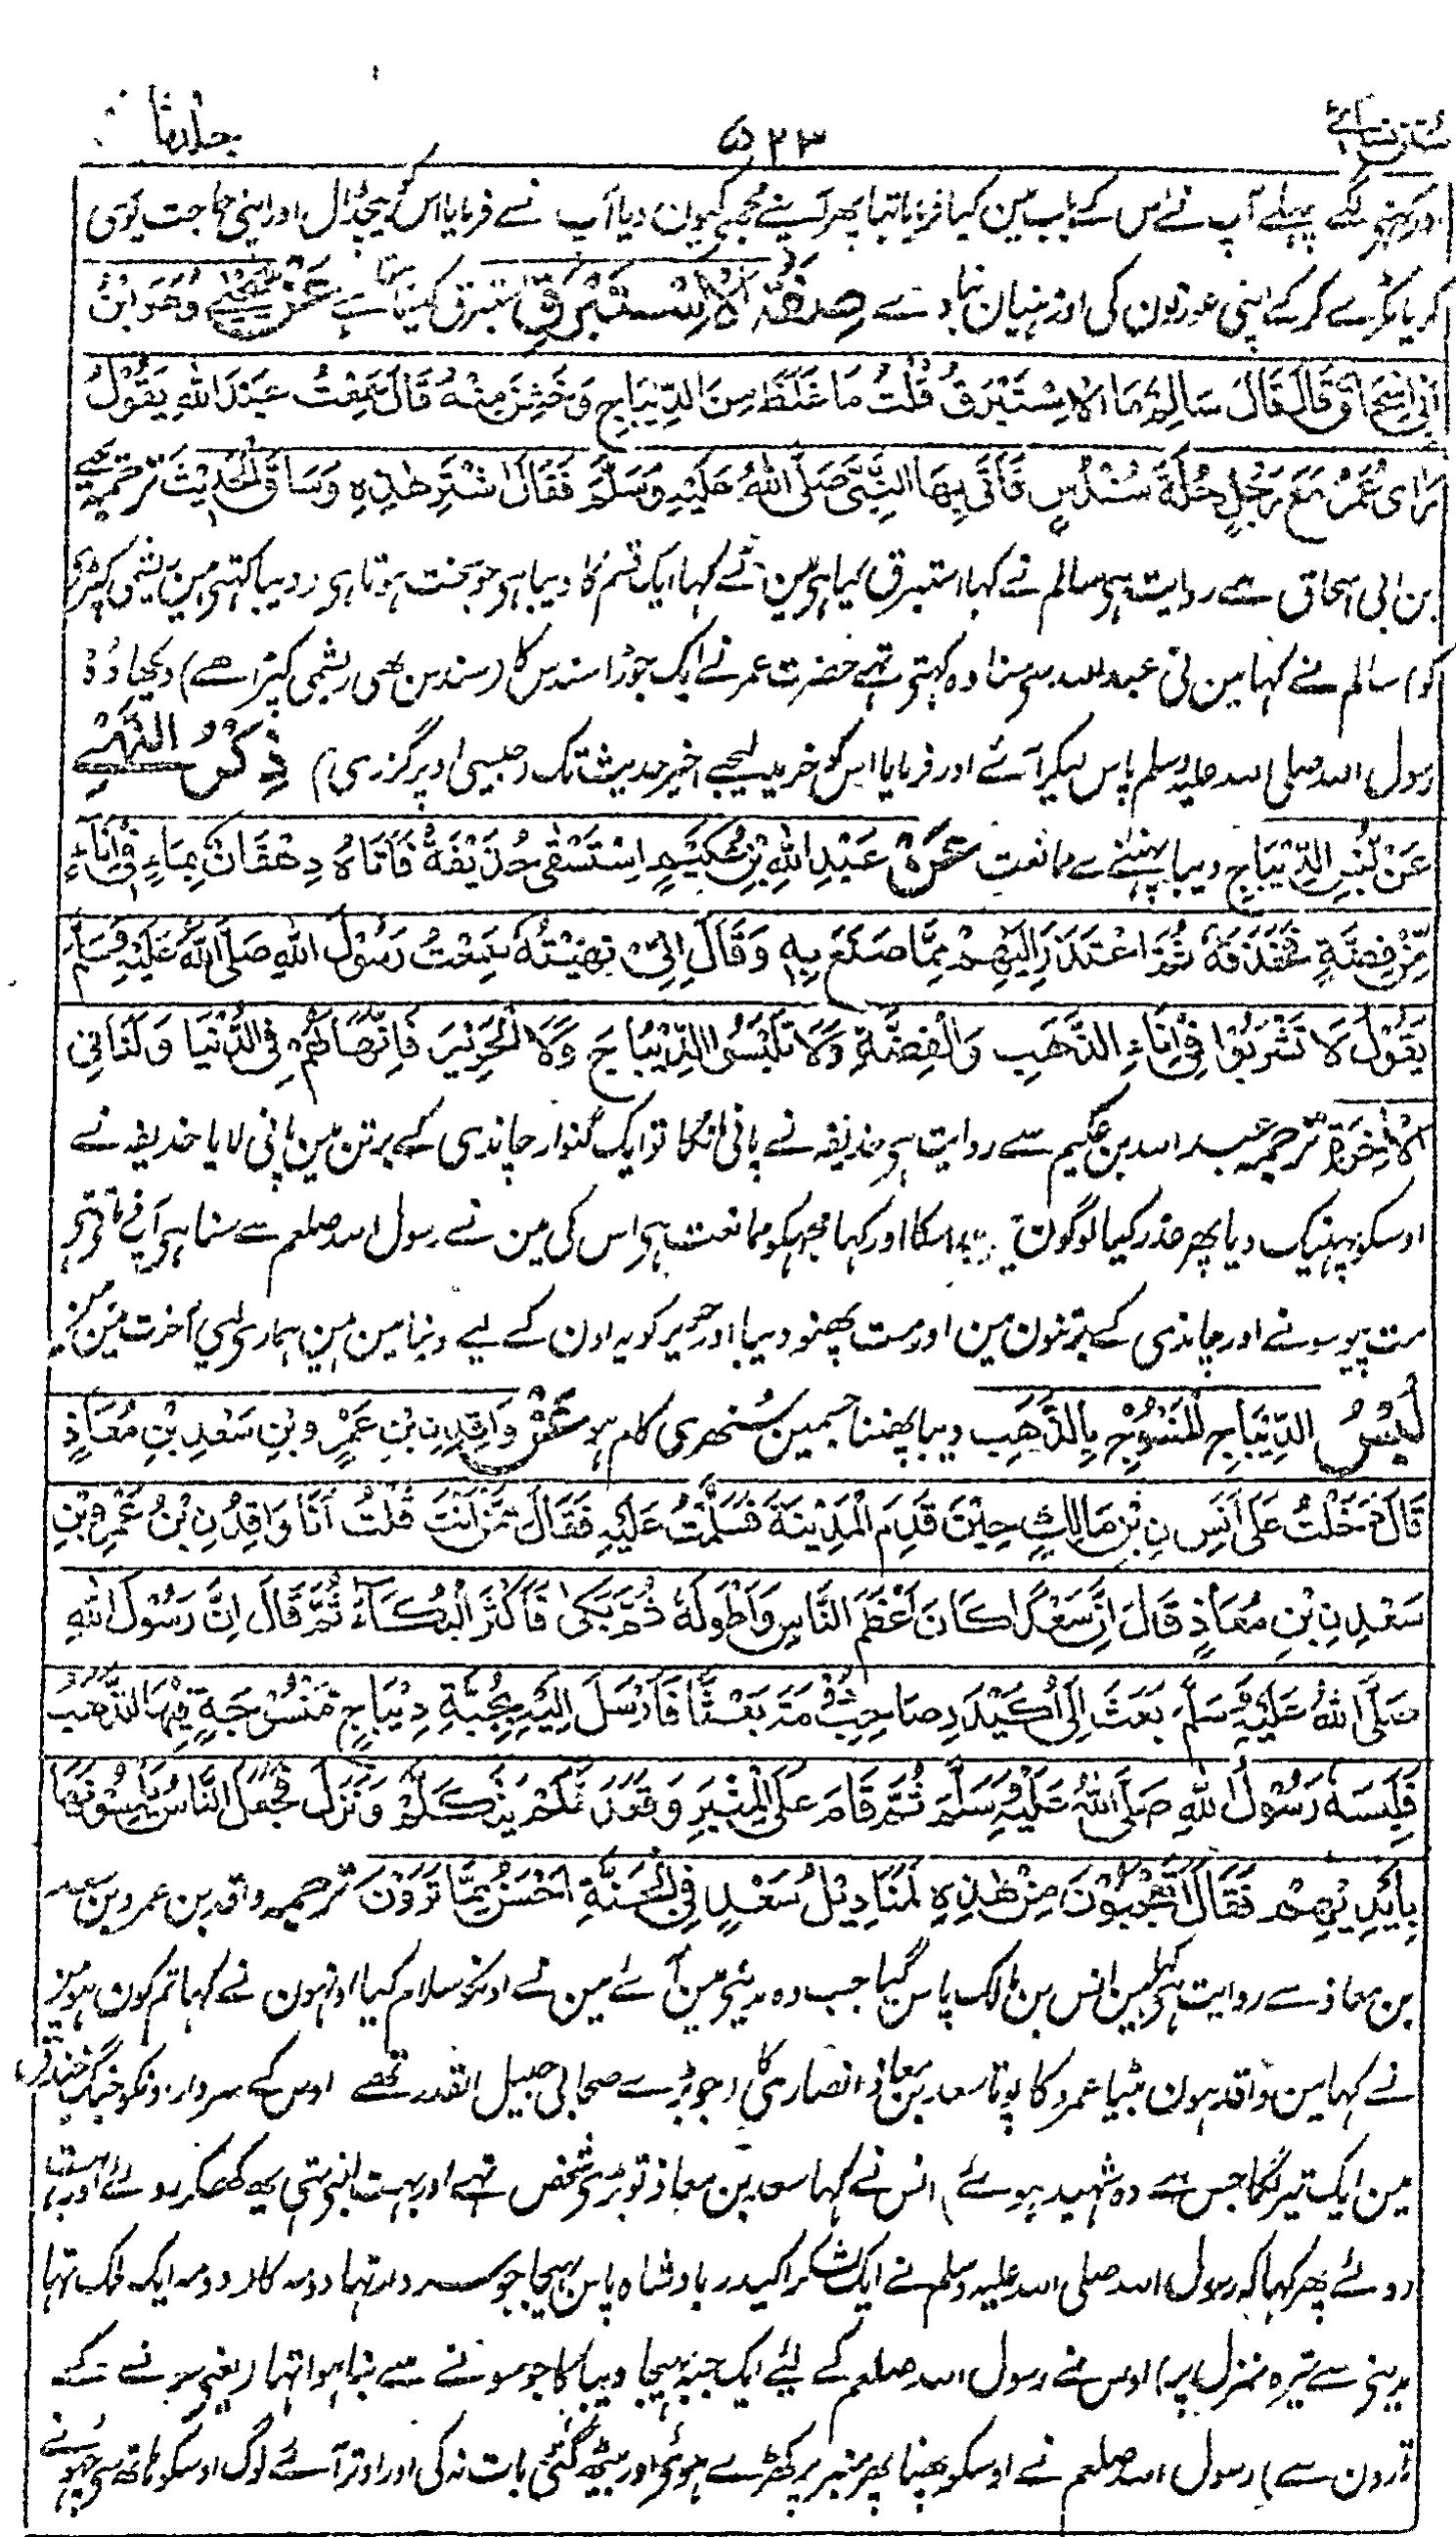 سنن نسائی ۵۲۳ جلد ثالث
اور کہنے لگے پہلے آپ نے اس کے باب مین کیا فرمایا تہا پھر آپنے مجھے کیون دیا آپ نے فرمایا اس کو بیچڈال اور اپنی حاجت پوری
کر یا ٹکڑے کر کے اپنی عورتون کی اوڑہنیان بنا دے صِفَةُ الْاِسْتَبْرَقِ استبرق کیسا ہوتا ہے عَنْ يَحْيٰی وَهُوَ ابْنُ
اَبِیْ اِسْحَاقَ قَالَ قَالَ سَالِمٌ مَا الْاِسْتَبْرَقُ قُلْتُ مَا غَلُظَ مِنَ الدِّيْبَاجِ وَخَشُنَ مِنْهُ قَالَ سَمِعْتُ عَبْدَ اللّٰهِ يَقُوْلُ
رَاٰی عُمَرُ مَعَ رَجُلٍ حُلَّةَ سُنْدُسٍ فَاَتٰی بِهَا النَّبِیَّ صَلَّی اللّٰهُ عَلَيْهِ وَسَلَّمَ فَقَالَ اشْتَرِ هٰذِهٖ وَسَاقَ الْحَدِيْثَ ترجمہ یحیے
بن ابی اسحاق سے روایت ہی سالم نے کہا استبرق کیا ہی مین نے کہا ایک قسم کا دیبا ہی جو سخت ہوتا ہی (دیبا کہتی ہین ریشمی کپڑی
کو) سالم نے کہا مین نی عبداللہ سی سنا وہ کہتی تہے حضرت عمر نے ایک جوڑا سندس کا (سندس بھی ریشمی کپڑا ہے) دیکھا وُہ
رسول اللہ صلی اللہ علیہ وسلم پاس لیکر آئے اور فرمایا اس کو خرید لیجیے اخیر حدیث تک (جیسی اوپر گزری) ذِکْرُ النَّهْیِ
عَنْ لُبْسِ الدِّيْبَاجِ دیبا پہننے سے ممانعت عَنْ عَبْدِ اللّٰهِ بْنِ عُکَيْمٍ اِسْتَسْقٰی حُذَيْفَةُ فَاَتَاهُ دِهْقَانٌ بِمَاءٍ فِیْ اِنَاءٍ
مِّنْ فِضَّةٍ فَحَذَفَهٗ ثُمَّ اعْتَذَرَ اِلَيْهِمْ مِمَّا صَنَعَ بِهٖ وَقَالَ اِنِّیْ نُهِيْتُهٗ سَمِعْتُ رَسُوْلَ اللّٰهِ صَلَّی اللّٰهُ عَلَيْهِ وَسَلَّمَ
يَقُوْلُ لَا تَشْرَبُوْا فِیْ اِنَاءِ الذَّهَبِ وَالْفِضَّةِ وَلَا تَلْبَسُوا الدِّيْبَاجَ وَلَا الْحَرِيْرَ فَاِنَّهَا لَهُمْ فِی الدُّنْيَا وَلَنَا فِی
الْاٰخِرَةِ ترجمہ عبد اللہ بن عکیم سے روایت ہی حذیفہ نے پانی مانگا تو ایک گنوار چاندی کے برتن مین پانی لایا حذیفہ نے
اوسکو پہینک دیا پھر عذر کیا لوگون سے اسکا اور کہا مجہکو ممانعت ہی اس کی مین نے رسول اللہ صلعم سے سنا ہی آپ فرماتی تہی
مت پیو سونے اور چاندی کے برتنون مین اور مت پھنو دیبا اور حریر کو یہ اون کے لیے دنیا مین ہین ہماری لیی آخرت مین
لُبْسُ الدِّيْبَاجِ الْمَنْسُوْجِ بِالذَّهَبِ دیبا پھننا جسمین سُنہری کام ہو عَنْ وَاقِدِ نِ بْنِ عَمْرِو بْنِ سَعْدِ بْنِ مُعَاذٍ
قَالَ دَخَلْتُ عَلٰی اَنَسِ نِ بْنِ مَالِكٍ حِيْنَ قَدِمَ الْمَدِيْنَةَ فَسَلَّمْتُ عَلَيْهِ فَقَالَ مَنْ اَنْتَ قُلْتُ اَنَا وَاقِدُ نِ بْنُ عَمْرِو بْنِ
سَعْدِ نِ بْنِ مُعَاذٍ قَالَ اِنَّ سَعْدًا كَانَ اَعْظَمَ النَّاسِ وَاَطْوَلَهٗ ثُمَّ بَکٰی فَاَكْثَرَ الْبُكَاءَ ثُمَّ قَالَ اِنَّ رَسُوْلَ اللّٰهِ
صَلَّی اللّٰهُ عَلَيْهِ وَسَلَّمَ بَعَثَ اِلٰی اُكَيْدَرِ صَاحِبِ دُوْمَةَ بَعْثًا فَاَرْسَلَ اِلَيْهِ بِجُبَّةِ دِيْبَاجٍ مَنْسُوْجَةٍ فِيْهَا الذَّهَبُ
فَلَبِسَهٗ رَسُوْلُ اللّٰهِ صَلَّی اللّٰهُ عَلَيْهِ وَسَلَّمَ ثُمَّ قَامَ عَلَی الْمِنْبَرِ وَقَعَدَ فَلَمْ يَتَكَلَّمْ وَنَزَلَ فَجَعَلَ النَّاسُ يَلْمِسُوْنَهَا
بِاَيْدِيْهِمْ فَقَالَ اَتَعْجَبُوْنَ مِنْ هٰذِهٖ لَمَنَادِيْلُ سَعْدٍ فِی الْجَنَّةِ اَحْسَنُ مِمَّا تَرَوْنَ ترجمہ واقد بن عمرو بن سعد
بن معاذ سے روایت ہی مین انس بن مالک پاس گیا جب وہ مدینی مین آئے مین نے اونکو سلام کیا اونہون نے کہا تم کون ہو مین
نے کہا مین واقد ہون بیٹا عمرو کا پوتا سعد بن معاذ انصاری کا (جو بڑے صحابی جلیل القدر تھے اوس کے سردار اونکو جنگ خندق
مین ایک تیر لگا جس سے وہ شہید ہوئے) انس نے کہا سعد بن معاذ تو بڑی شخص تہے اور بہت لنبی تہی یہ کھکر روئے اور بہت
روئے پھر کہا کہ رسول اللہ صلی اللہ علیہ وسلم نے ایک لشکر اکیدر بادشاہ پاس بہیجا جو سردار تہا دومہ کا (دومہ ایک ملک تہا
مدینی سے تیرہ منزل پر) اوس نے رسول اللہ صلعم کے لیئے ایک جبہ بہیجا دیبا کا جو سونے سے بنا ہوا تہا (یعنی سونے کے
تارون سے) رسول اللہ صلعم نے اوسکو پھنا پھر منبر پر کھڑے ہوئی اور بیٹھ گئی بات نہ کی اور اوتر آئے لوگ اوسکو ہاتھ سی چھونے